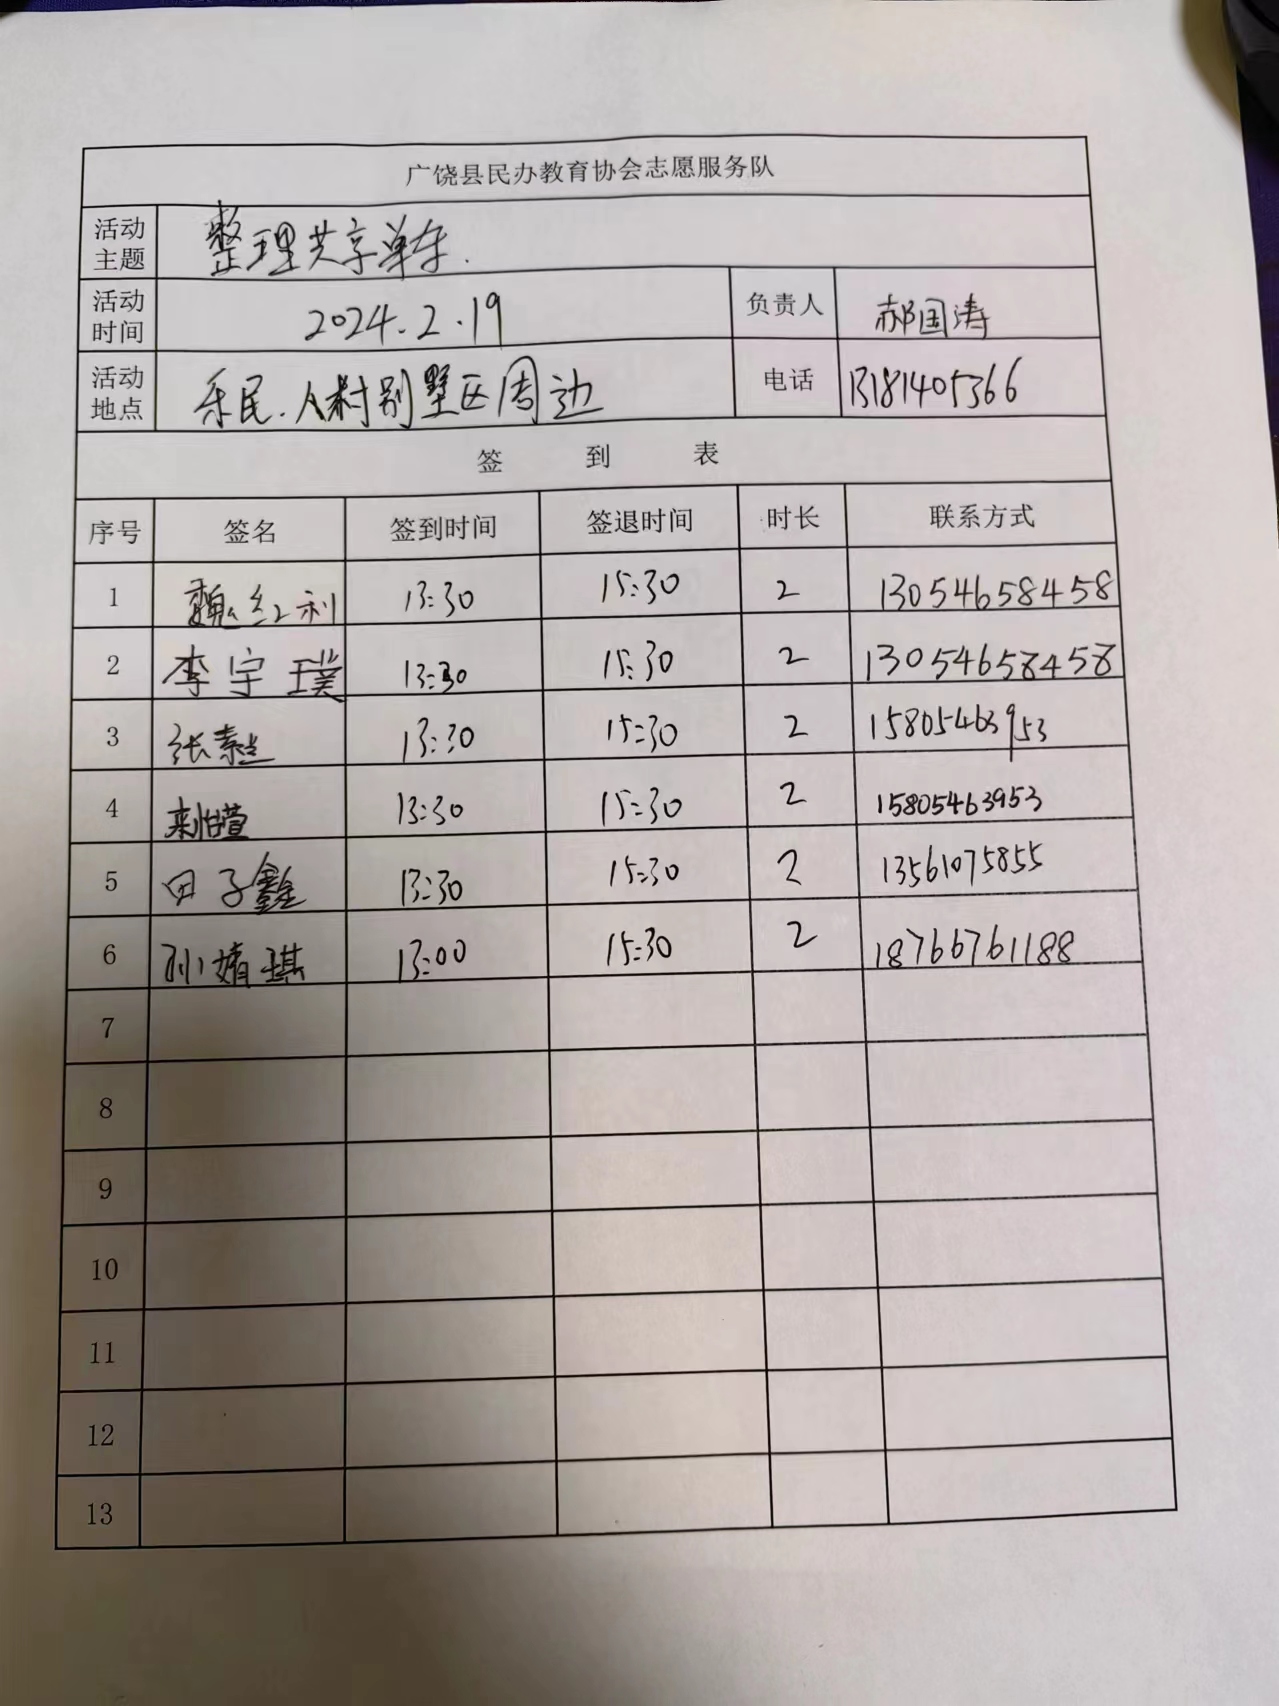 广饶县民办教育协会志愿服务队
活动主题 整理共享单车.
活动时间 2024.2.19 负责人 郝国涛
活动地点 乐民.人村别墅区周边 电话 13181405366
签 到 表
序号 签名 签到时间 签退时间 时长 联系方式
1 魏红利 13:30 15:30 2 13054658458
2 李宇璞 13:30 15:30 2 13054658458
3 张素兰 13:30 15:30 2 15805463953
4 13:30 15:30 2 15805463953
5 田子鑫 13:30 15:30 2 13561075855
6 孙婧琪 13:00 15:30 2 18766761188
7
8
9
10
11
12
13